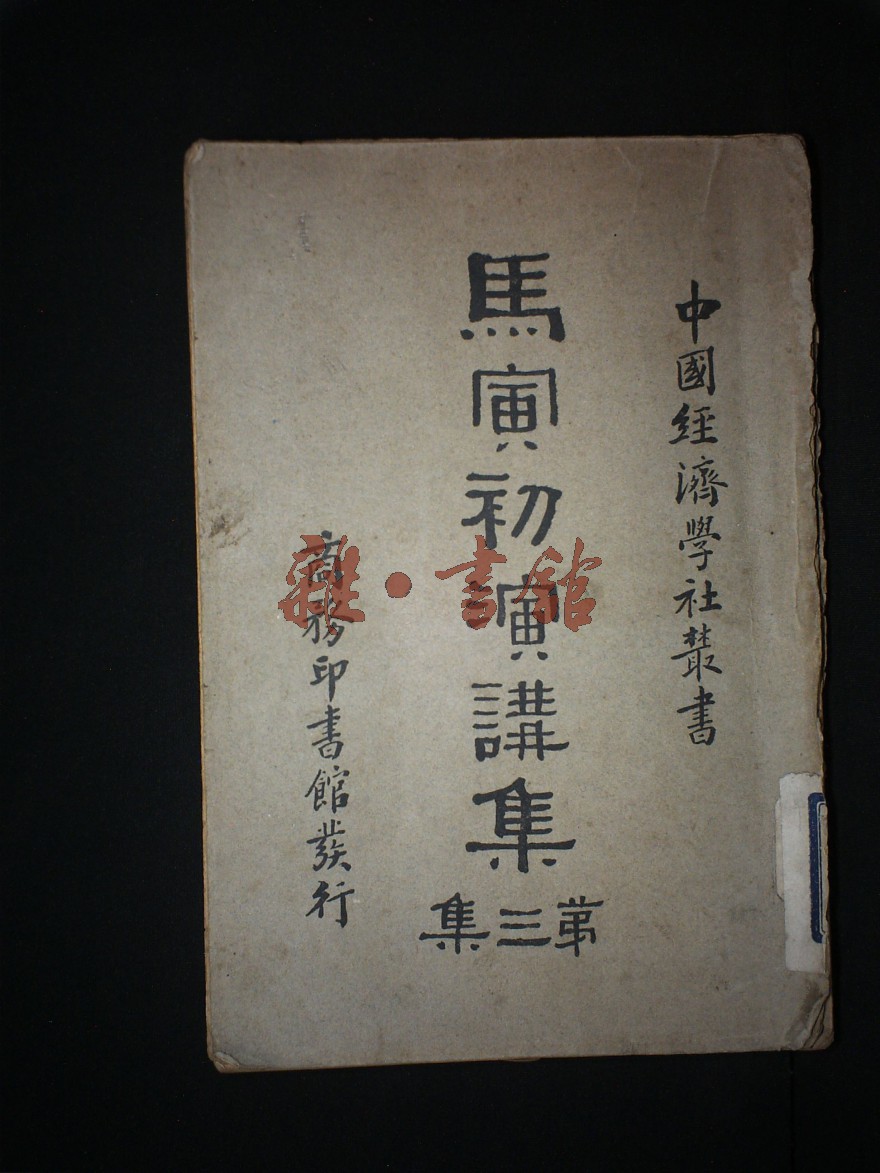 中國經濟學社叢書
馬寅初演講集
第三集
商務印書館發行
雜·書館